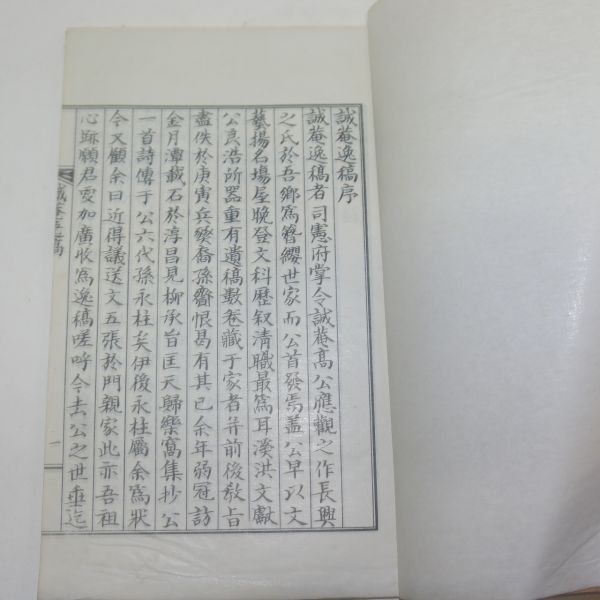 誠菴逸稿序
誠菴逸稿者司憲府掌令誠菴高公應觀之作長興
之氏於吾鄉爲簪纓世家而公首發焉盖公早以文
藝揚名場屋晚登文科歷叙淸職最爲耳溪洪文獻
公良浩所器重有遺稿數卷藏于家者并前後敎旨
盡佚於庚寅兵燹裔孫齎恨曷有其已余年弱冠訪
金月潭載石於淳昌見柳承旨匡天歸樂窩集抄公
一首詩傳于公六代孫永柱矣伊後永柱屬余爲狀
今又顧余曰近得議送文五張於門親家此亦吾祖
心跡願君要加廣收爲逸稿嗟呼今去公之世垂迄
誠菴逸稿
一